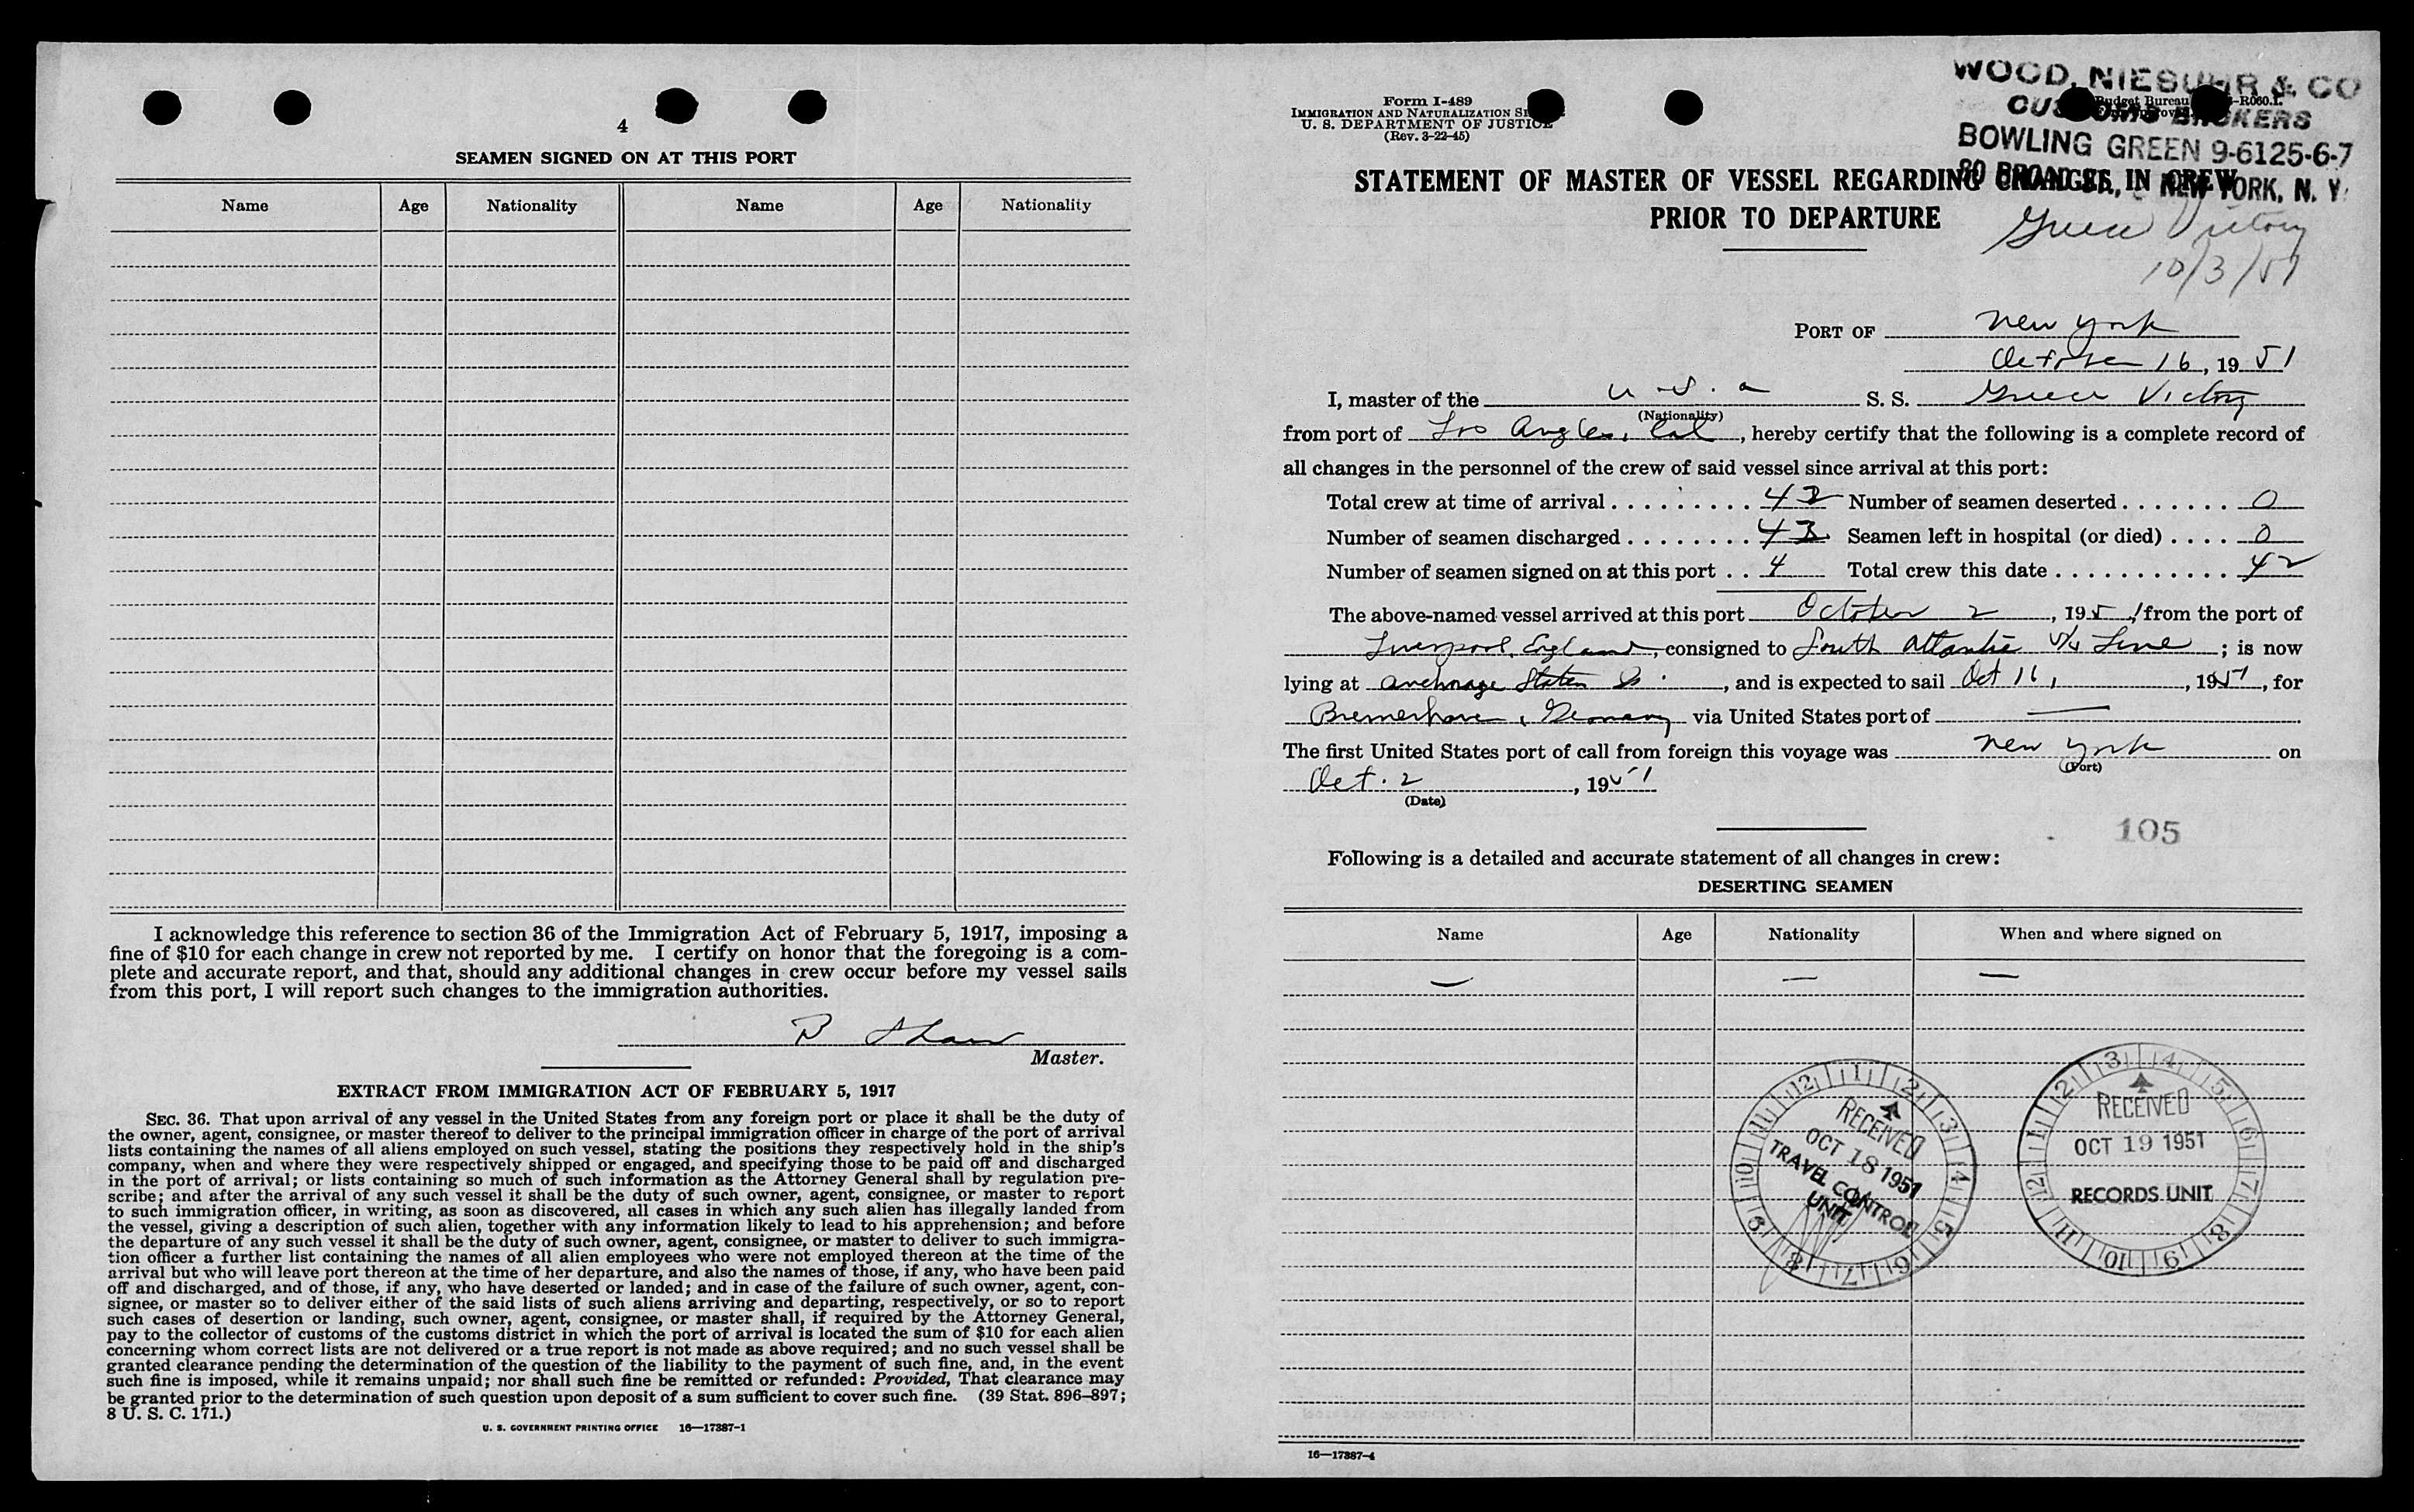 4
SEAMEN SIGNED ON AT THIS PORT
Name Age Nationality Name Age Nationality
I acknowledge this reference to section 36 of the Immigration Act of February 5, 1917, imposing a
fine of $10 for each change in crew not reported by me. I certify on honor that the foregoing is a com-
plete and accurate report, and that, should any additional changes in crew occur before my vessel sails
from this port, I will report such changes to the immigration authorities.
B Shaw
Master.
EXTRACT FROM IMMIGRATION ACT OF FEBRUARY 5, 1917
SEC. 36. That upon arrival of any vessel in the United States from any foreign port or place it shall be the duty of
the owner, agent, consignee, or master thereof to deliver to the principal immigration officer in charge of the port of arrival
lists containing the names of all aliens employed on such vessel, stating the positions they respectively hold in the ship's
company, when and where they were respectively shipped or engaged, and specifying those to be paid off and discharged
in the port of arrival; or lists containing so much of such information as the Attorney General shall by regulation pre-
scribe; and after the arrival of any such vessel it shall be the duty of such owner, agent, consignee, or master to report
to such immigration officer, in writing, as soon as discovered, all cases in which any such alien has illegally landed from
the vessel, giving a description of such alien, together with any information likely to lead to his apprehension; and before
the departure of any such vessel it shall be the duty of such owner, agent, consignee, or master to deliver to such immigra-
tion officer a further list containing the names of all alien employees who were not employed thereon at the time of the
arrival but who will leave port thereon at the time of her departure, and also the names of those, if any, who have been paid
off and discharged, and of those, if any, who have deserted or landed; and in case of the failure of such owner, agent, con-
signee, or master so to deliver either of the said lists of such aliens arriving and departing, respectively, or so to report
such cases of desertion or landing, such owner, agent, consignee, or master shall, if required by the Attorney General,
pay to the collector of customs of the customs district in which the port of arrival is located the sum of $10 for each alien
concerning whom correct lists are not delivered or a true report is not made as above required; and no such vessel shall be
granted clearance pending the determination of the question of the liability to the payment of such fine, and, in the event
such fine is imposed, while it remains unpaid; nor shall such fine be remitted or refunded: Provided, That clearance may
be granted prior to the determination of such question upon deposit of a sum sufficient to cover such fine. (39 Stat. 896–897;
8 U. S. C. 171.)
U. S. GOVERNMENT PRINTING OFFICE 16—17387-1
Form I-489
IMMIGRATION AND NATURALIZATION
U. S. DEPARTMENT OF JUSTICE
(Rev. 3-22-45)
Budget Bureau -R060.1.
WOOD, NIESUHR & CO
CUSTOMS BROKERS
BOWLING GREEN 9-6125-6-7
80 BROAD ST., NEW YORK, N. Y.
STATEMENT OF MASTER OF VESSEL REGARDING CHANGES IN CREW
PRIOR TO DEPARTURE
Greece Victory
10/3/51
PORT OF New York
October 16, 1951
I, master of the U. S. a S. S. Greece Victory
(Nationality)
from port of Los Angles, Cal, hereby certify that the following is a complete record of
all changes in the personnel of the crew of said vessel since arrival at this port:
Total crew at time of arrival . . . . . . . . . 42 Number of seamen deserted . . . . . . . 0
Number of seamen discharged . . . . . . . . 43 Seamen left in hospital (or died) . . . . 0
Number of seamen signed on at this port . . 4 Total crew this date . . . . . . . . . . . 42
The above-named vessel arrived at this port October 2, 1951 from the port of
Liverpool, England, consigned to South Atlantic S/S Line; is now
lying at anchorage Staten Is., and is expected to sail Oct 16, 1951, for
Bremerhaven, Germany via United States port of —
The first United States port of call from foreign this voyage was New York on
(Port)
Oct. 2, 1951
(Date)
105
Following is a detailed and accurate statement of all changes in crew:
DESERTING SEAMEN
Name Age Nationality When and where signed on
— — —
12 1 2 3 4 5 6 7 8 9 10 11
RECEIVED
OCT 18 1951
TRAVEL CONTROL
UNIT
3 4 5 6 7 8 9 10 11 12 1 2
RECEIVED
OCT 19 1951
RECORDS UNIT
16—17387-4